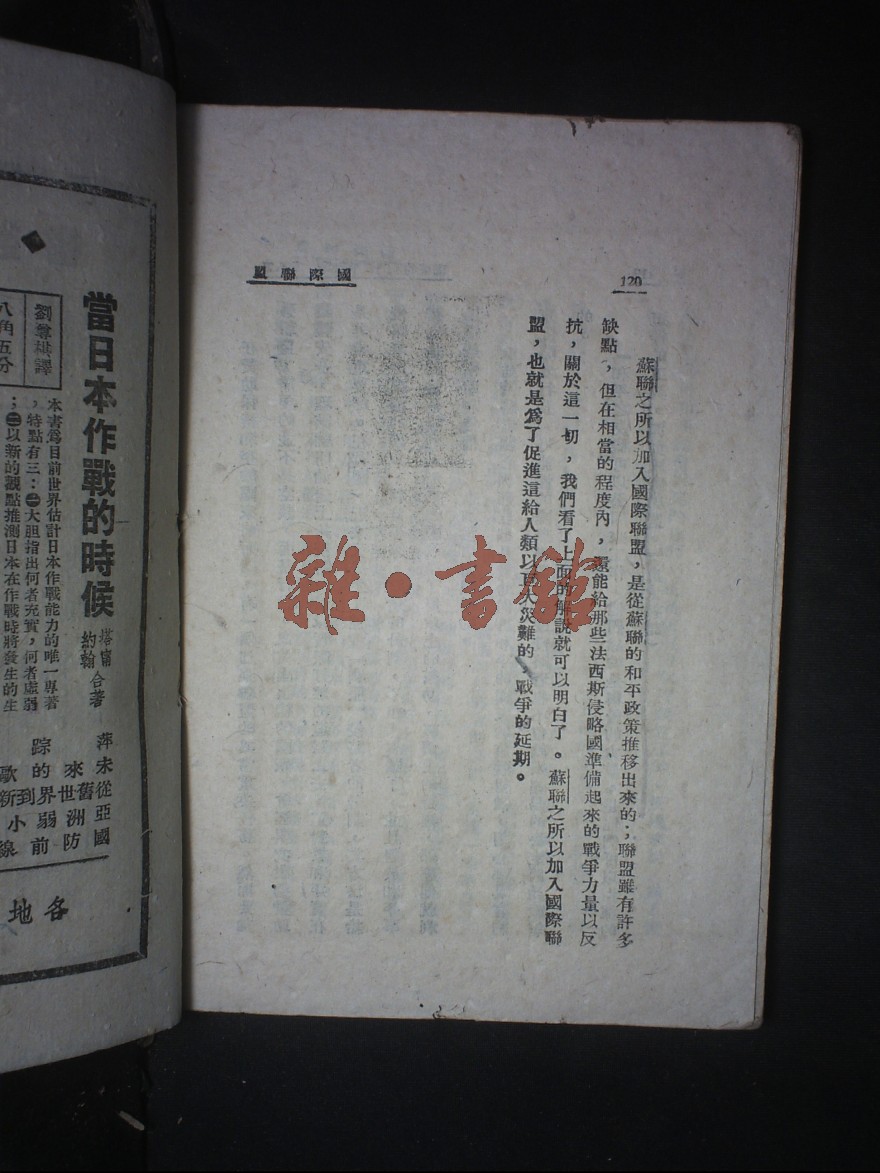 120
國際聯盟
蘇聯之所以加入國際聯盟，是從蘇聯的和平政策推移出來的；聯盟雖有許多
缺點，但在相當的程度內，還能給那些法西斯侵略國準備起來的戰爭力量以反
抗，關於這一切，我們看了上面的解說就可以明白了。蘇聯之所以加入國際聯
盟，也就是爲了促進這給人類以巨大災難的、戰爭的延期。
雜·書館
當日本作戰的時候
塔甯
約翰
合著
劉尊棋譯
八角五分
本書爲目前世界估計日本作戰能力的唯一專著
，特點有三：㊀大胆指出何者充實，何者虛弱
；㊁以新的觀點推測日本在作戰時將發生的生
萍踪
未來的
從舊世界到新
亞洲弱小
國防前線
各地